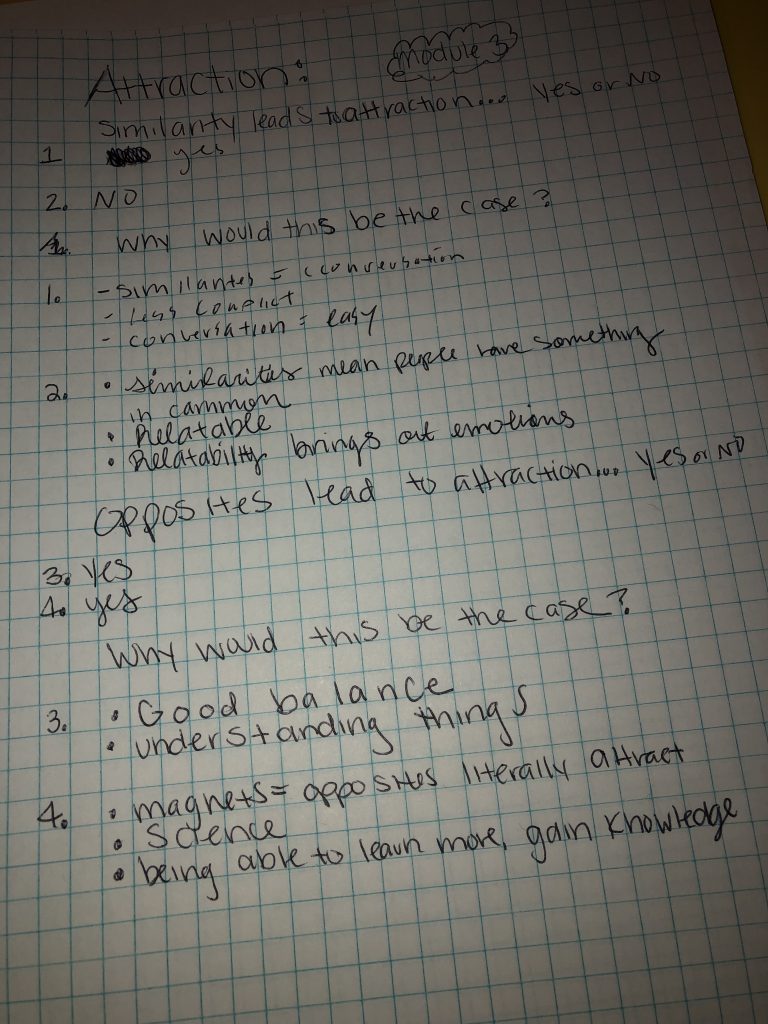 Module 3
Attraction:
Similarity leads to attraction... yes or NO
1 yes
2. NO
Why would this be the case?
1. - similarites = cconversation
- less conflict
- conversation = easy
2. • similarities mean people have something
in common
• Relatable
• Relatability brings out emotions
Opposites lead to attraction... yes or NO
3. yes
4. yes
Why would this be the case?
3. • Good balance
• understanding things
4. • magnets = opposites literally attract
• Science
• being able to learn more, gain knowledge